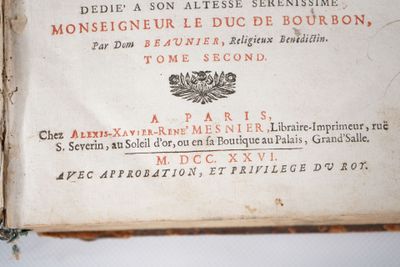 DEDIE' A SON ALTESSE SERENISSIME
MONSEIGNEUR LE DUC DE BOURBON,
Par Dom BEAUNIER, Religieux Benedictin.
TOME SECOND.
A PARIS,
Chez ALEXIS-XAVIER-RENE' MESNIER, Libraire-Imprimeur, ruë
S. Severin, au Soleil d'or, ou en sa Boutique au Palais, Grand'Salle.
M. DCC. XXVI.
AVEC APPROBATION, ET PRIVILEGE DU ROY.